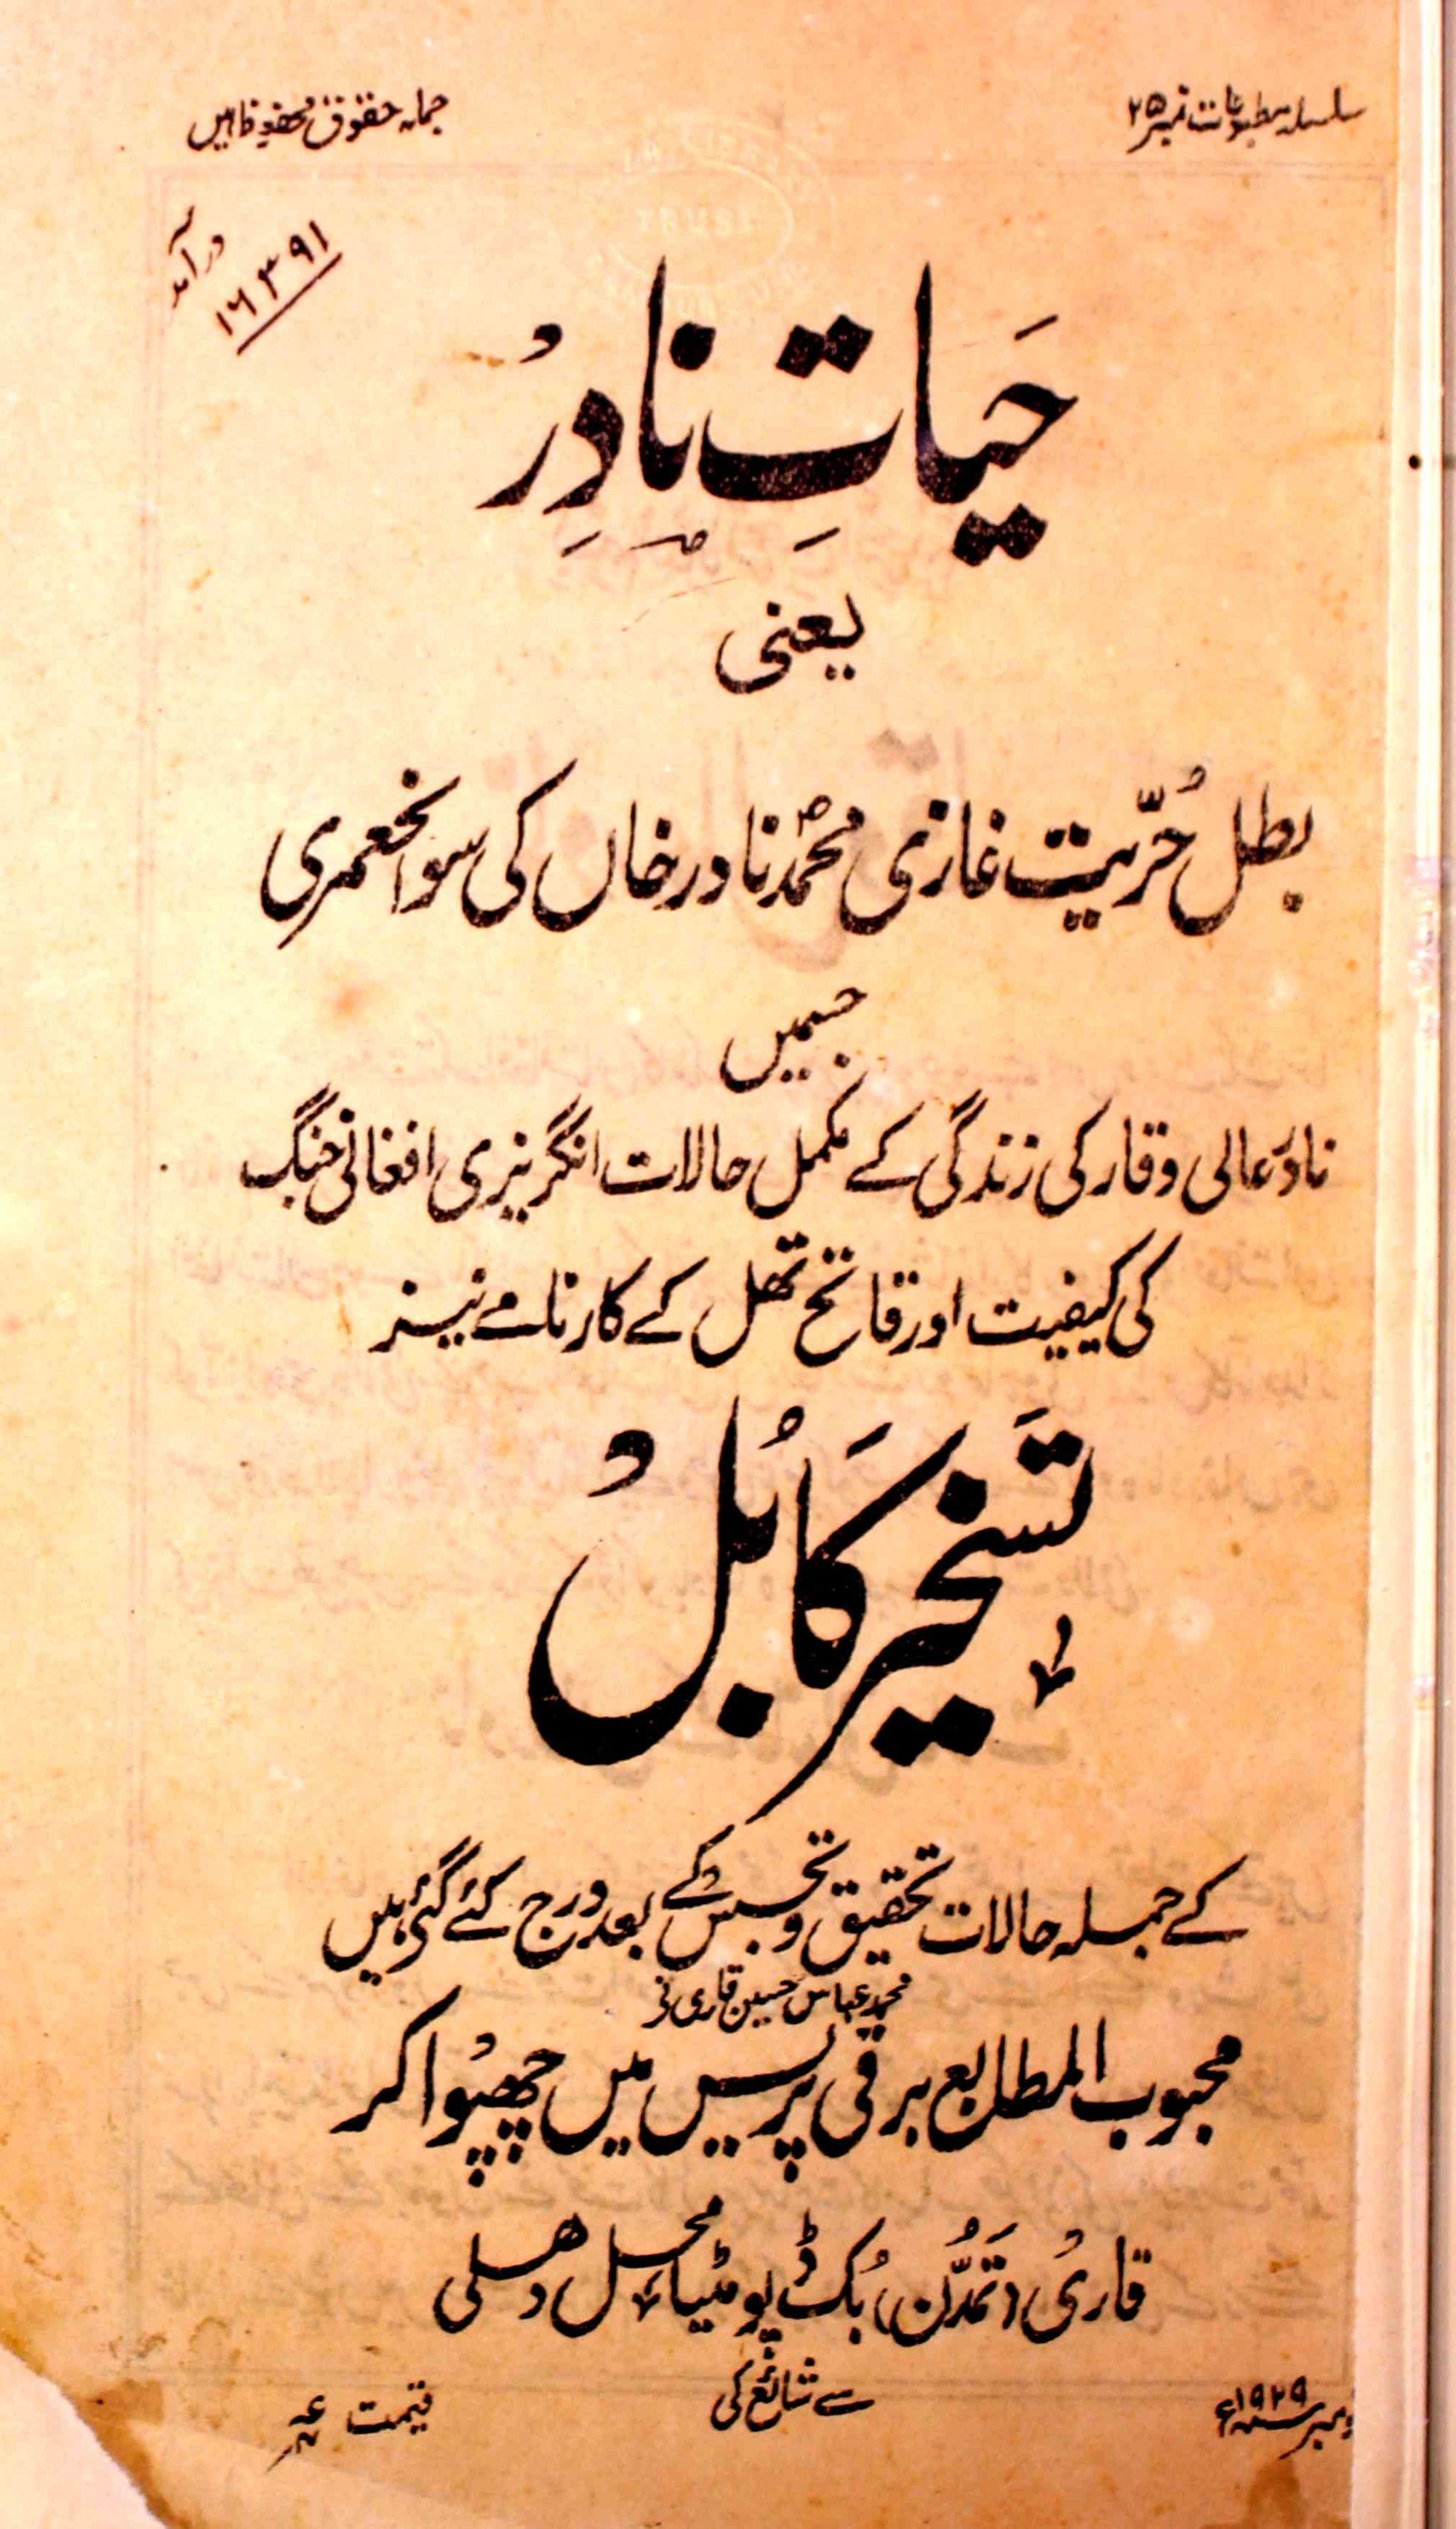 سلسلہ مطبوعات نمبر ۲۵
جملہ حقوق محفوظ ہیں
درآمد
۱۶۳۹۱
TRUST
حیاتِ نادِر
یعنی
بطل حُرّیت غازی محمدؐ نادر خاں کی سوانحعمری
جسمیں
نادر عالی وقار کی زندگی کے مکمل حالات انگریزی افغانی جنگ
کی کیفیت اور فاتح تھل کے کارنامے نیز
تَسخیر کَابُل
کے جملہ حالات تحقیق و تجسس کے بعد درج کئے گئے ہیں
محمد عباس حسین قاری نے
محبوب المطابع برقی پریس میں چھپوا کر
قاری (تَمدُّن) بُک ڈپو مٹیا محل دھلی
سے شائع کی
دسمبر سنہ ۱۹۲۹ء
قیمت